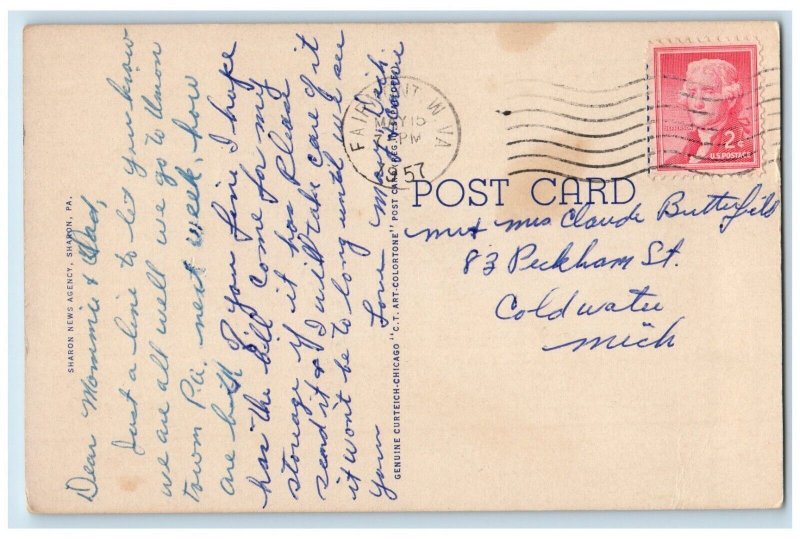 Dear Mommie & Dad,
Just a line to let you know
we are all well we go to Union
town P.a. next week, how
are both of you fine I hope
has the bill come for my
storage if it has Please
send it & I will take care of it
it won't be to long until we see
you
Love
SHARON NEWS AGENCY, SHARON, PA.
GENUINE CURTEICH-CHICAGO "C.T. ART-COLORTONE" POST CARD
FAIRMONT W VA
MAY 15
PM
1957
2¢
U.S. POSTAGE
POST CARD
Mr & Mrs Claude Butterfield
83 Peckham St.
Coldwater
Mich